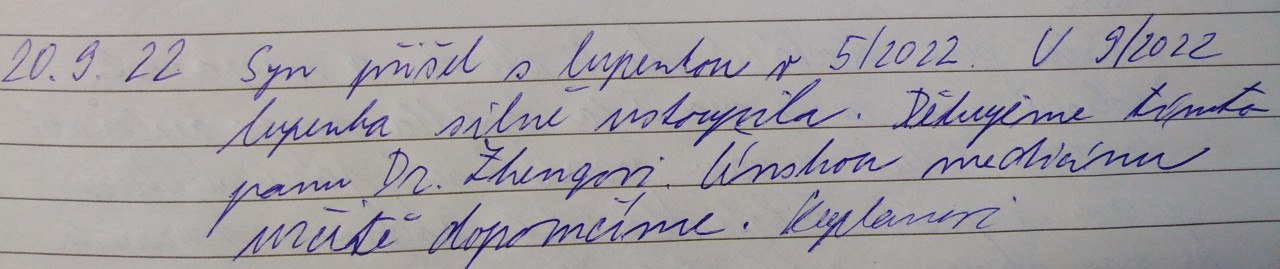 20. 9. 22 Syn přišel s lupenkou v 5/2022. V 9/2022
lupenka silně ustoupila. Děkujeme tímto
panu Dr. Zhengovi. Čínskou medicínu
určitě doporučíme.